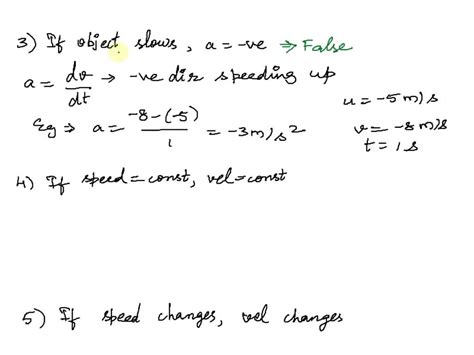 3) If object slows, a = -ve ⇒ False
a = dv/dt → -ve dir speeding up
u = -5 m/s
Eg ⇒ a = -8-(-5)/1 = -3m/s²
v = -8 m/s
t = 1 s
4) If speed = const, vel = const
5) If speed changes, vel changes